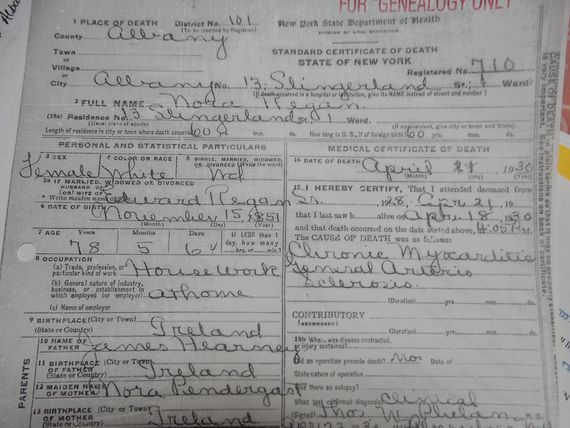 FOR GENEALOGY ONLY
1 PLACE OF DEATH District No. 101 New York State Department of Health
(To be inserted by Registrar) DIVISION OF VITAL STATISTICS
County Albany
STANDARD CERTIFICATE OF DEATH
Town
or
STATE OF NEW YORK
Village
or
Registered No. 710
City Albany No. 13 Slingerland St.; 1 Ward)
(If death occurred in a hospital or institution, give its NAME instead of street and number)
2 FULL NAME Nora Regan
(18a) Residence No. 13 Slingerland St. 1 Ward.
(Usual place of abode) (If nonresident, give city or town and State)
Length of residence in city or town where death occurred 60 yrs. mos. ds. How long in U. S., if of foreign birth? 60 yrs. mos. ds.
PERSONAL AND STATISTICAL PARTICULARS
MEDICAL CERTIFICATE OF DEATH
3 SEX 4 COLOR OR RACE 5 SINGLE, MARRIED, WIDOWED, OR DIVORCED (Write the word)
Female White Wd
16 DATE OF DEATH April 21 1930
(Month) (Day) (Year)
5a IF MARRIED, WIDOWED OR DIVORCED
HUSBAND OF
(OR) WIFE OF Edward Regan
Write maiden name
6 DATE OF BIRTH November 15, 1851
(Month) (Day) (Year)
7 AGE Years Months Days IF LESS than 1 day, how many hrs. or min.?
78 5 6
17 I HEREBY CERTIFY, That I attended deceased from
1928, Apr 21, 19
that I last saw h alive on Apr 18, 1930
and that death occurred on the date stated above, 4:05 P.M.
The CAUSE OF DEATH was as follows:
Chronic Myocarditis
General Arterio
Sclerosis
(Duration) yrs. mos. ds.
CONTRIBUTORY
(SECONDARY)
(Duration) yrs. mos. ds.
8 OCCUPATION
(a) Trade, profession, or particular kind of work Housework
(b) General nature of industry, business, or establishment in which employed (or employer) at home
(c) Name of employer
9 BIRTHPLACE (City or Town)
(State or Country) Ireland
PARENTS
10 NAME OF FATHER James Hearney
11 BIRTHPLACE OF FATHER (City or Town)
(State or Country) Ireland
12 MAIDEN NAME OF MOTHER Nora Pendergast
13 BIRTHPLACE OF MOTHER (City or Town)
(State or Country) Ireland
18b Where was disease contracted,
or injury sustained?
Did an operation precede death? no Date of
State nature of operation
Was there an autopsy?
What test confirmed diagnosis? clinical
(Signed) Thos. W. Phelan M.D.